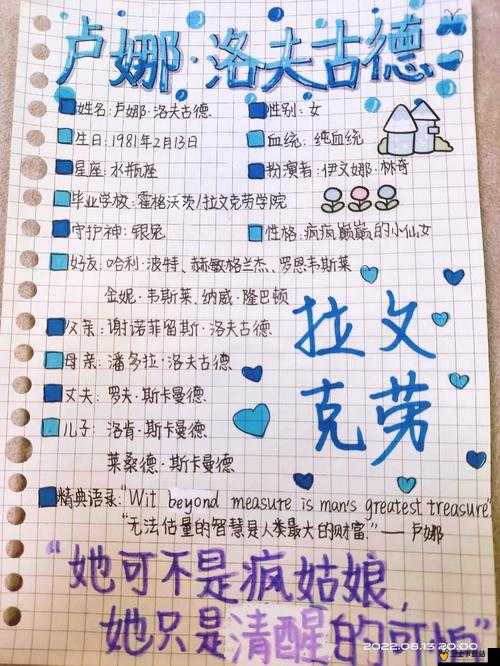 卢娜·洛夫古德
姓名:卢娜·洛夫古德 性别:女
生日:1981年2月13日 血统:纯血统
星座:水瓶座 扮演者:伊文娜·林奇
毕业学校:霍格沃茨/拉文克劳学院
守护神:银兔 性格:疯疯巅巅的小仙女
好友:哈利·波特、赫敏格兰杰、罗恩韦斯莱
金妮·韦斯莱、纳威·隆巴顿
父亲:谢诺菲留斯·洛夫古德
母亲:潘多拉·洛夫古德
丈夫:罗夫·斯卡曼德
儿子:洛肯·斯卡曼德
莱桑德·斯卡曼德
拉文
克劳
精典语录:"Wit beyond measure is man's greatest treasure"
"无法估量的智慧是人类最大的财富"——卢娜
"她可不是疯姑娘,
她只是清醒的可怕"
2022.08.13 20:00